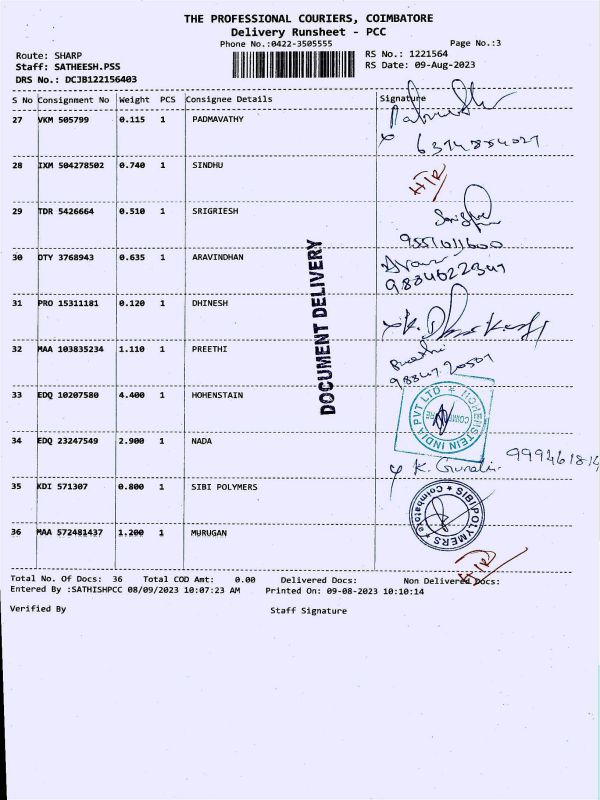 THE PROFESSIONAL COURIERS, COIMBATORE
Delivery Runsheet - PCC
Phone No.:0422-3505555
Page No.:3
Route: SHARP
RS No.: 1221564
Staff: SATHEESH.PSS
RS Date: 09-Aug-2023
DRS No.: DCJB122156403
S No Consignment No Weight PCS Consignee Details Signature
27 VKM 505799 0.115 1 PADMAVATHY
28 IXM 504278502 0.740 1 SINDHU
29 TDR 5426664 0.510 1 SRIGRIESH
9551011600
30 OTY 3768943 0.635 1 ARAVINDHAN
DOCUMENT DELIVERY
31 PRO 15311181 0.120 1 DHINESH
32 MAA 103835234 1.110 1 PREETHI
Preethi
33 EDQ 10207580 4.400 1 HOHENSTAIN
HOHENSTEIN INDIA PVT LTD
34 EDQ 23247549 2.900 1 NADA
35 KDI 571307 0.800 1 SIBI POLYMERS
SIBI POLYMERS
36 MAA 572481437 1.200 1 MURUGAN
Total No. Of Docs: 36 Total COD Amt: 0.00 Delivered Docs: Non Delivered Docs:
Entered By :SATHISHPCC 08/09/2023 10:07:23 AM Printed On: 09-08-2023 10:10:14
Verified By Staff Signature